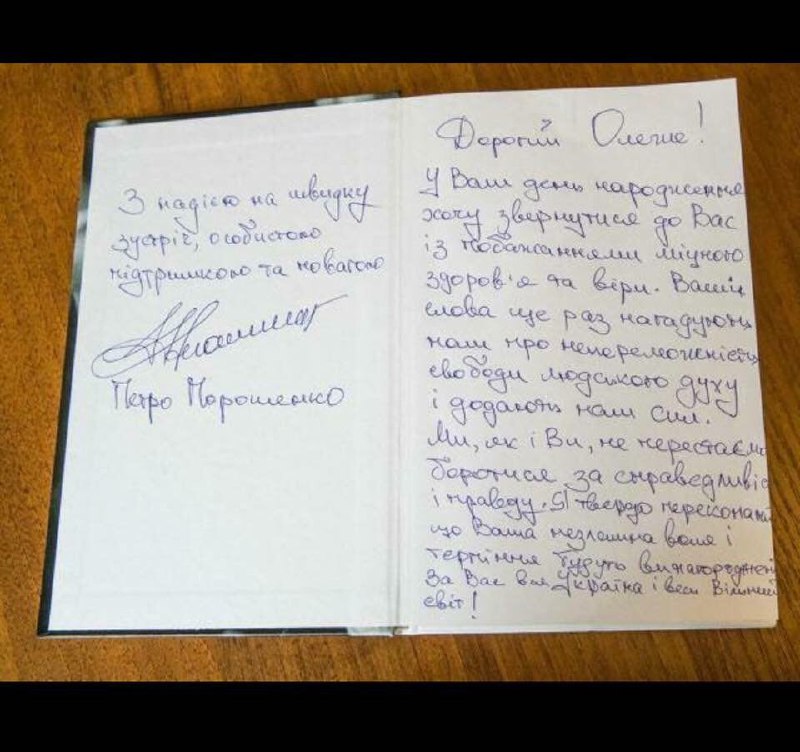 З надією на швидку
зустріч, особистою
підтримкою та повагою
Петро Порошенко
Дорогий Олегже!
У Ваш день народження
хочу звернутися до Вас
із побажаннями міцного
здоров'я та віри. Ваші
слова ще раз нагадують
нам про непереможність
свободи людського духу
і додають нам сил.
Ми, як і Ви, не перестаємо
боротися за справедливіс
і правду. Я твердо переконаний
що Ваша незламна воля і
терпіння будуть винагороджені
За Вас вся Україна і весь Вільний
світ!